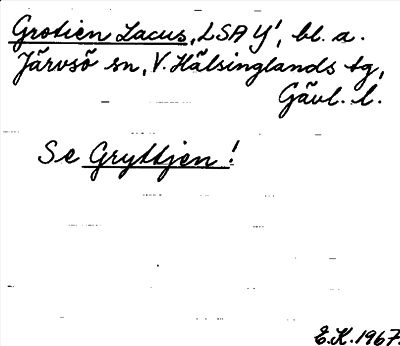 Grotien Lacus, LSA Y', bl. a.
Järvsö sn, V. Hälsinglands tg,
Gävl. l.
Se Gryttjen!
E.K. 1967.